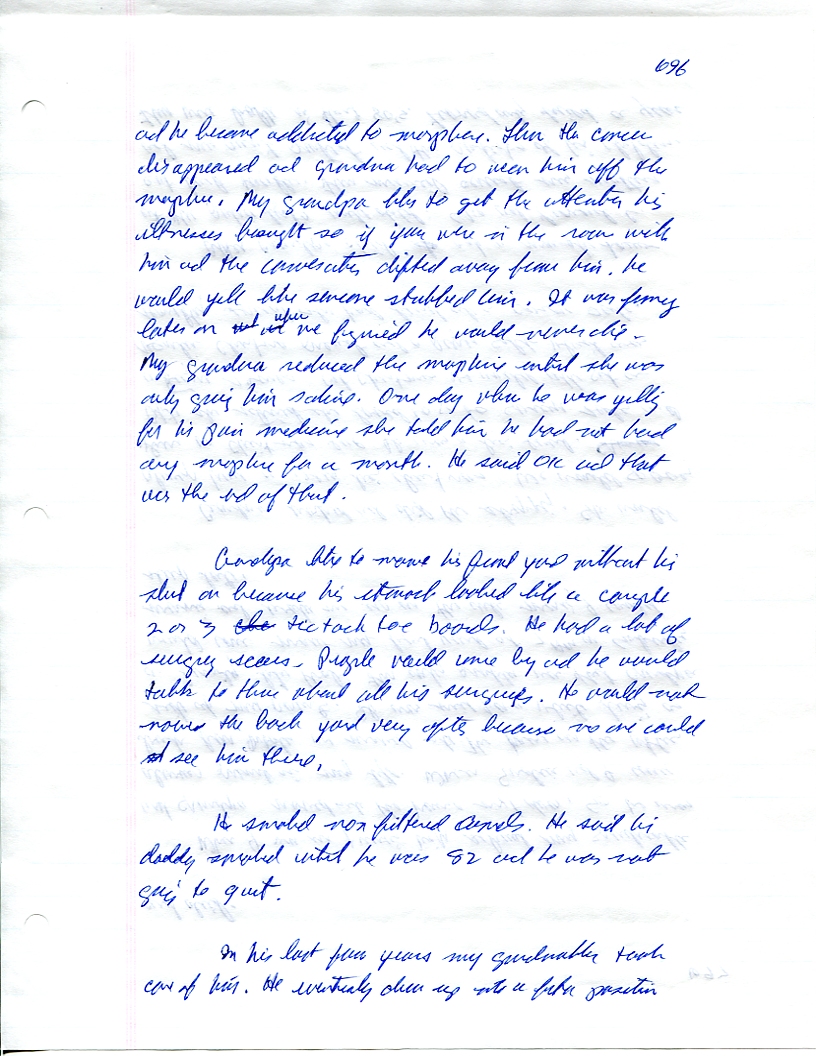 696
and he became addicted to morphine. Then the cancer
disappeared and grandma had to wean him off the
morphine. My grandpa like to get the attention his
illnesses brought so if you were in the room with
him and the conversation drifted away from him, he
would yell like someone stabbed him. It was funny
later on when we figured he would never die.
My grandma reduced the morphine until she was
only giving him saline. One day when he was yelling
for his pain medicine she told him he had not had
any morphine for a month. He said OK and that
was the end of that.
Grandpa like to mow his front yard without his
shirt on because his stomach looked like a couple
2 or 3 tic tack toe boards. He had a lot of
surgery scars. People would come by and he would
talk to them about all his surgeries. He would not
mow the back yard very often because no one could
see him there.
He smoked non filtered Camels. He said his
daddy smoked until he was 82 and he was not
going to quit.
In his last few years my grandmother took
care of him. He eventually drew up into a fetal position